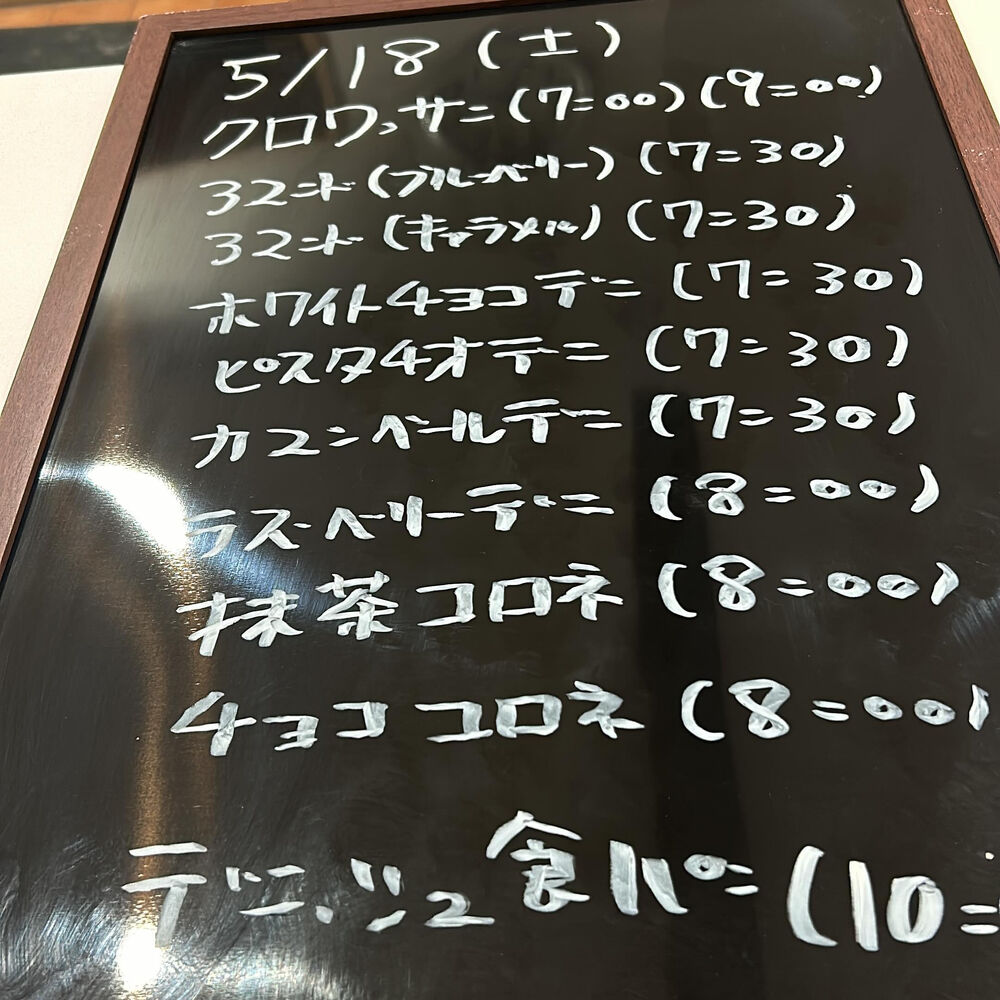 5/18（土）
クロワッサン（7:00）（9:00）
クロワンド（ブルーベリー）（7:30）
クロワンド（キャラメル）（7:30）
ホワイトチョコデニ（7:30）
ピスタチオデニ（7:30）
カマンベールデニ（7:30）
ラズベリーデニ（8:00）
抹茶コロネ（8:00）
チョココロネ（8:00）
デニッシュ食パン（10: